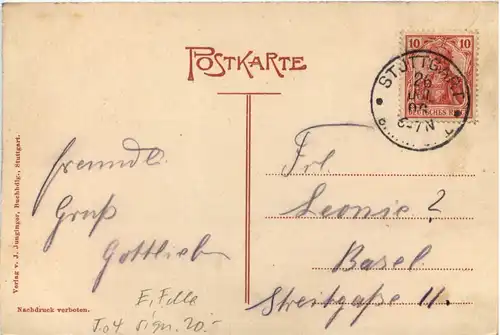 POSTKARTE
10 10
DEUTSCHES REICH
STUTTGART
26
06
6-7N
Freundl.
Gruß
Gottlieb
Frl.
Leonie
Basel
Streitgaße 11.
E, Felle
sign. 20.-
Verlag v. J. Junginger, Buchhdlg., Stuttgart.
Nachdruck verboten.